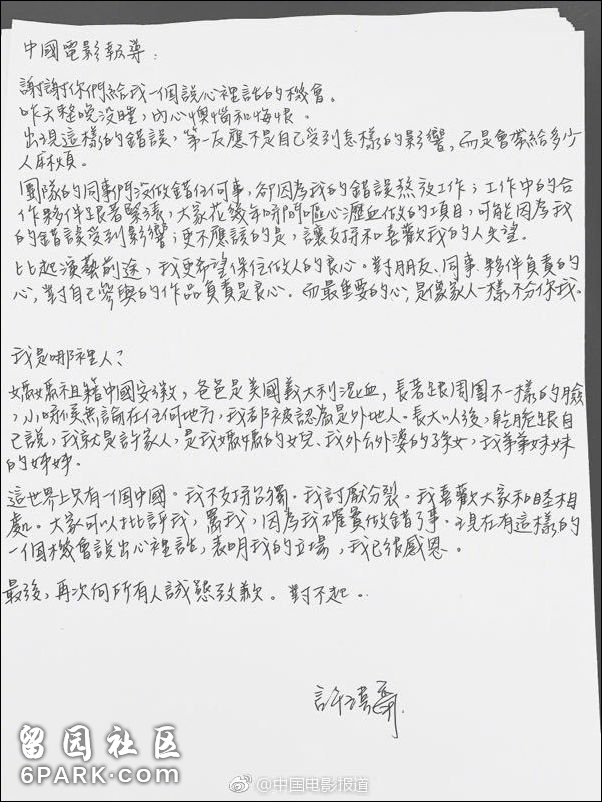 中國電影報導:
謝謝你們給我一個說心裡話的機會。
昨天整晚沒睡,內心懊惱和悔恨。
出現這樣的錯誤,第一反應不是自己受到怎樣的影響,而是會帶給多少
人麻煩。
團隊的同事們沒做錯任何事,卻因為我的錯誤熬夜工作;工作中的合
作夥伴跟著緊張,大家花幾年時間嘔心瀝血做的項目,可能因為我
的錯誤受到影響;更不應該的是,讓支持和喜歡我的人失望。
比起演藝前途,我更希望保住做人的良心。對朋友、同事、夥伴負責的
心,對自己參與的作品負責是良心。而最重要的心,是像家人一樣不分你我。
我是哪裡人?
媽媽祖籍中國安徽,爸爸是美國義大利混血,長著跟周圍不一樣的臉
,小時候無論在任何地方,我都被認為是外地人。長大以後,乾脆跟自
己說,我就是許家人,是我媽媽的女兒、我外公外婆的孫女,我弟弟妹妹
的姊姊。
這世界上只有一個中國。我不支持台獨。我討厭分裂。我喜歡大家和睦相
處。大家可以批評我,罵我,因為我確實做錯了事。現在有這樣的
一個機會說出心裡話,表明我的立場,我已很感恩。
最後,再次向所有人誠懇致歉。對不起。
許瑋甯
留园社区
6PARK.COM
@中国电影报道